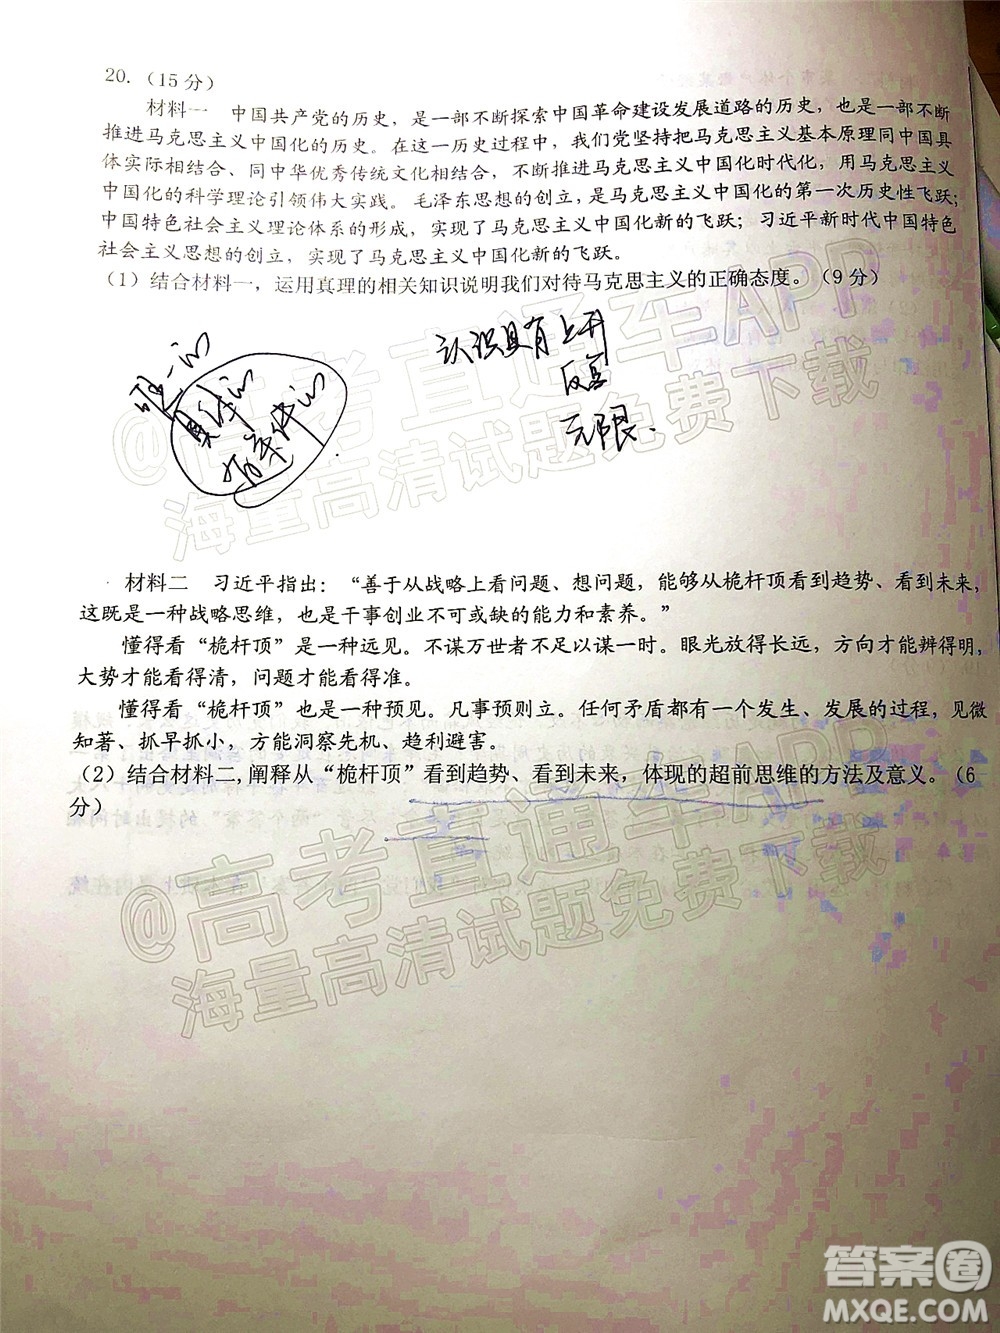 20.（15 分）
材料一　中国共产党的历史，是一部不断探索中国革命建设发展道路的历史，也是一部不断
推进马克思主义中国化的历史。在这一历史过程中，我们党坚持把马克思主义基本原理同中国具
体实际相结合、同中华优秀传统文化相结合，不断推进马克思主义中国化时代化，用马克思主义
中国化的科学理论引领伟大实践。毛泽东思想的创立，是马克思主义中国化的第一次历史性飞跃；
中国特色社会主义理论体系的形成，实现了马克思主义中国化新的飞跃；习近平新时代中国特色
社会主义思想的创立，实现了马克思主义中国化新的飞跃。
（1）结合材料一，运用真理的相关知识说明我们对待马克思主义的正确态度。（9 分）
唯一的
具体的
有条件的
认识具有上升
反复
无限、
@高考直通车APP
海量高清试题免费下载
材料二　习近平指出：“善于从战略上看问题、想问题，能够从桅杆顶看到趋势、看到未来，
这既是一种战略思维，也是干事创业不可或缺的能力和素养。”
懂得看“桅杆顶”是一种远见。不谋万世者不足以谋一时。眼光放得长远，方向才能辨得明，
大势才能看得清，问题才能看得准。
懂得看“桅杆顶”也是一种预见。凡事预则立。任何矛盾都有一个发生、发展的过程，见微
知著、抓早抓小，方能洞察先机、趋利避害。
（2）结合材料二，阐释从“桅杆顶”看到趋势、看到未来，体现的超前思维的方法及意义。（6
分）
@高考直通车APP
海量高清试题免费下载
答案圈
MXQE.COM